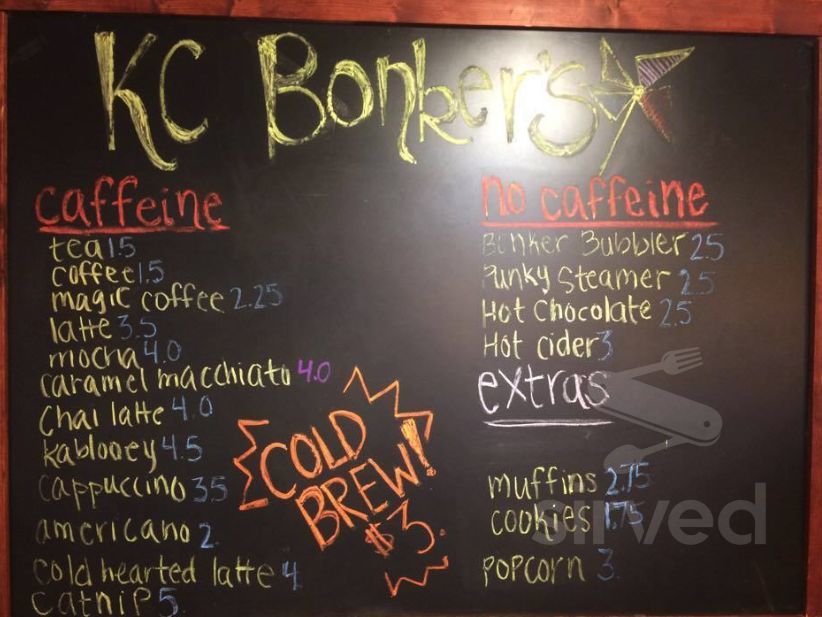 KC Bonker's
caffeine
tea 1.5
coffee 1.5
magic coffee 2.25
latte 3.5
mocha 4.0
caramel macchiato 4.0
chai latte 4.0
kablooey 4.5
cappuccino 3.5
americano 2.
cold hearted latte 4.
catnip 5.
COLD
BREW!
$3.
no caffeine
Bonker Bubbler 2.5
Funky Steamer 2.5
Hot Chocolate 2.5
Hot cider 3
extras
muffins 2.75
cookies 1.75
popcorn 3.
sirved